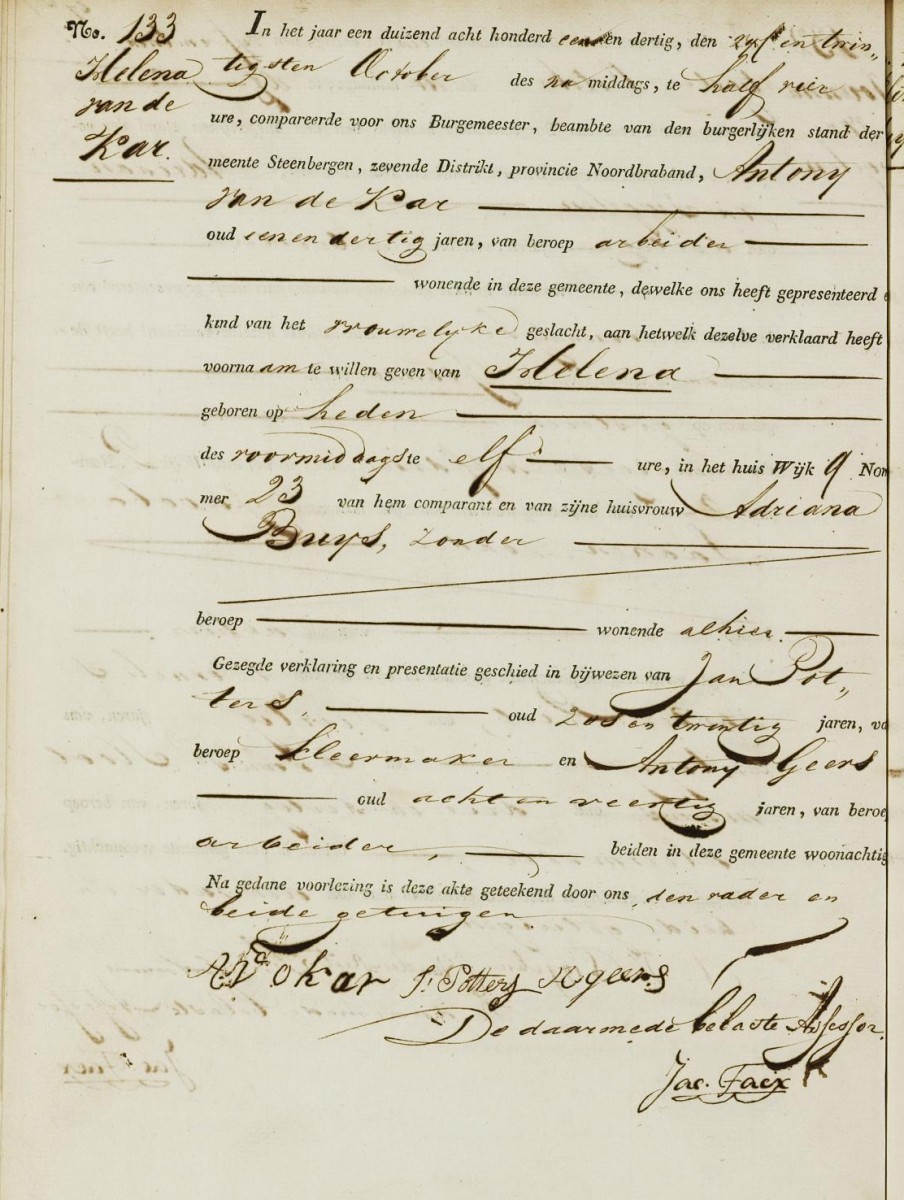 No. 133
Helena
van de
Kar.
In het jaar een duizend acht honderd een en dertig, den zes en twin„
tigsten October des na middags, te half vier
ure, compareerde voor ons Burgemeester, beambte van den burgerlijken stand der
meente Steenbergen, zevende Distrikt, provincie Noordbraband, Antony
van de Kar
oud een en dertig jaren, van beroep arbeider
wonende in deze gemeente, dewelke ons heeft gepresenteerd
kind van het vrouwelyke geslacht, aan hetwelk dezelve verklaard heeft
voorna am te willen geven van Helena
geboren op heden
des voormiddags te elf ure, in het huis Wijk 9 Nom
mer 23 van hem comparant en van zijne huisvrouw Adriana
Buys, zonder
beroep wonende alhier.
Gezegde verklaring en presentatie geschied in bijwezen van Jan Pot„
ters, oud zes en twintig jaren, va
beroep kleermaker en Antony Geers
oud acht en veertig jaren, van beroe
arbeider, beiden in deze gemeente woonachtig
Na gedane voorlezing is deze akte geteekend door ons, den vader en
beide getuigen
A. Vd Kar J. Potters A geers
De daarmede belaste Assessor.
Jac. Faex